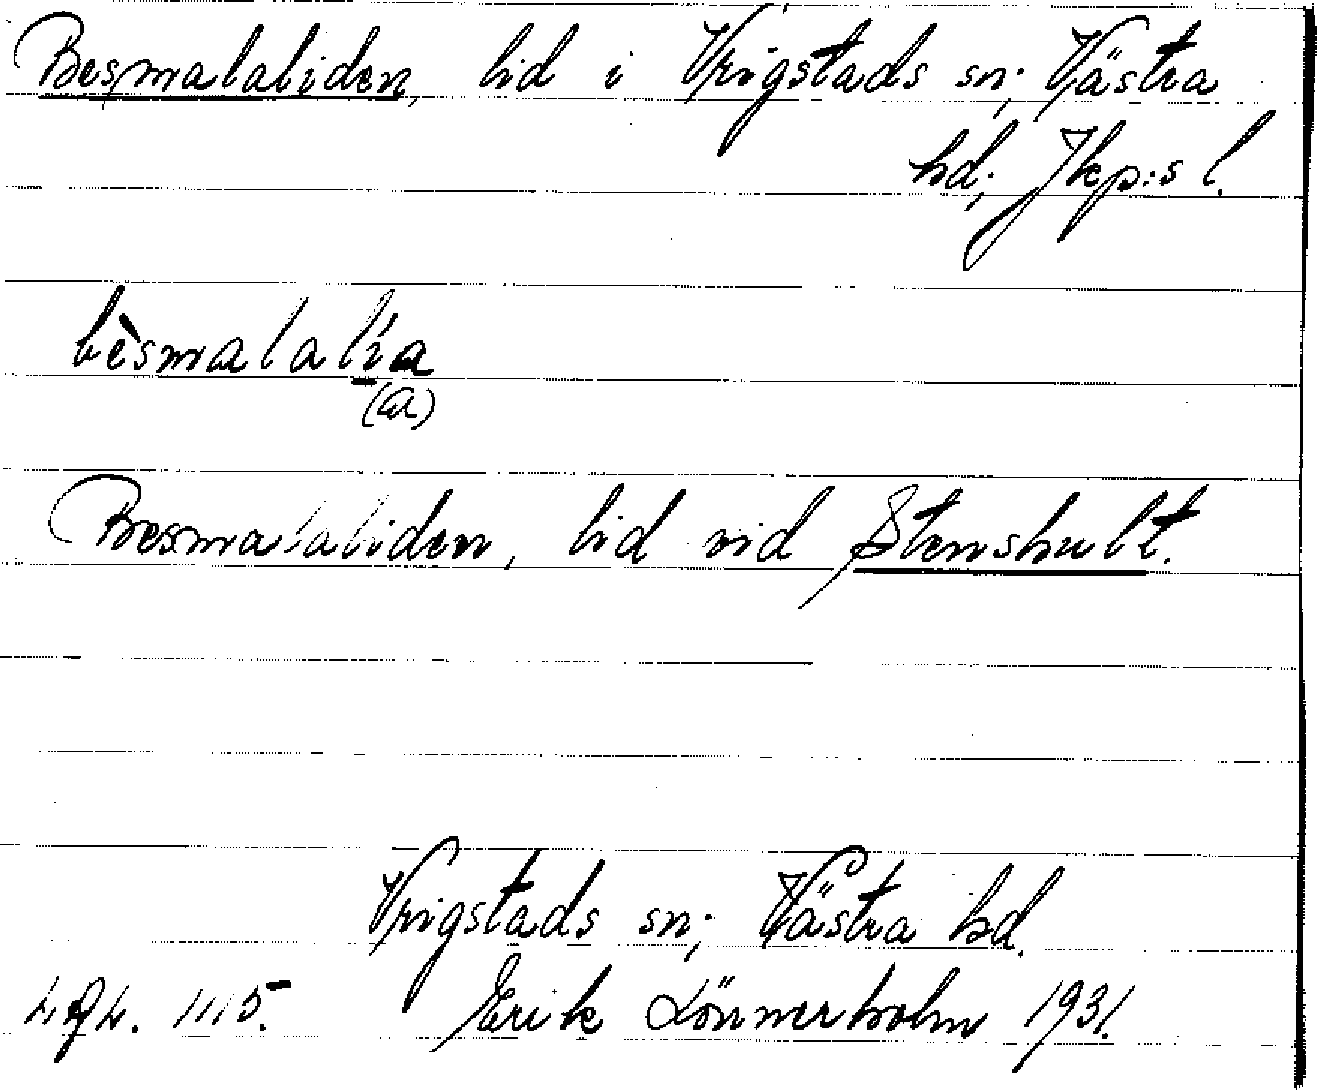 Besmalaliden, lid i Vrigstads sn; Västra
hd; Jkp:s l.
bèsmalalía
(a)
Besmalaliden, lid vid Stenshult.
Vrigstads sn; Västra hd.
1115. Erik Lönnerholm 1931.